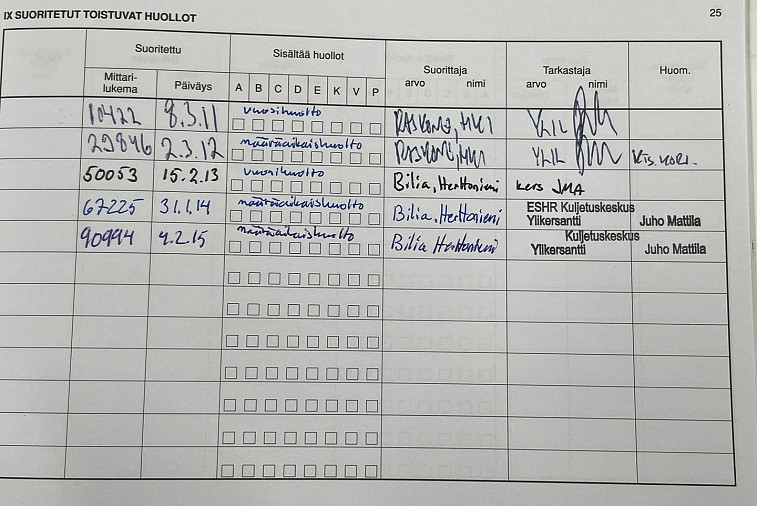 IX SUORITETUT TOISTUVAT HUOLLOT 25
Suoritettu Sisältää huollot Suorittaja Tarkastaja Huom.
Mittari-
lukema Päiväys A B C D E K V P arvo nimi arvo nimi
10422 8.3.11 vuosihuolto RASKONE, HKI YLIL
29846 2.3.12 määräaikaishuolto RASKONE, HKI YLIL
50053 15.2.13 vuosihuolto Bilia, Herttoniemi kers JMA
67225 31.1.14 määräaikaishuolto Bilia, Herttoniemi ESHR Kuljetuskeskus
Ylikersantti Juho Mattila
90994 4.2.15 määräaikaishuolto Bilia Herttoniemi Kuljetuskeskus
Ylikersantti Juho Mattila